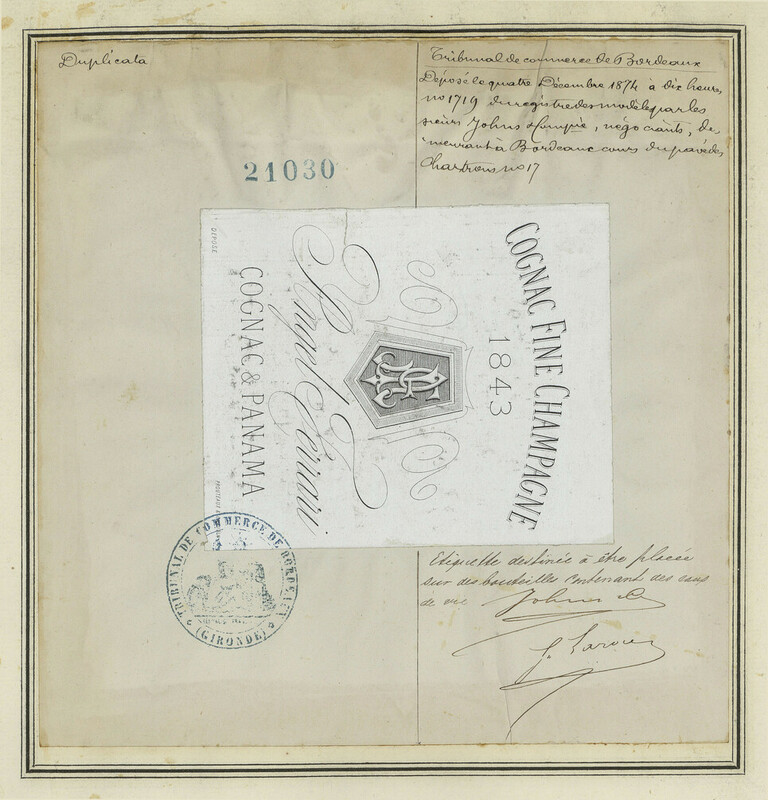 Duplicata
Tribunal de commerce de Bordeaux
Déposé le quatre Décembre 1874 à dix heures
no 1719 du registre des modèles par les
sieurs Johns & Compie, négociants, de
meurant à Bordeaux cours du pavé des
Chartrons no 17
21030
COGNAC FINE CHAMPAGNE
1843
Angel Ferrari
COGNAC & PANAMA
DÉPOSÉ
TRIBUNAL DE COMMERCE DE BORDEAUX
(GIRONDE)
Etiquette destinée à être placée
sur des bouteilles contenant des eaux
de vie